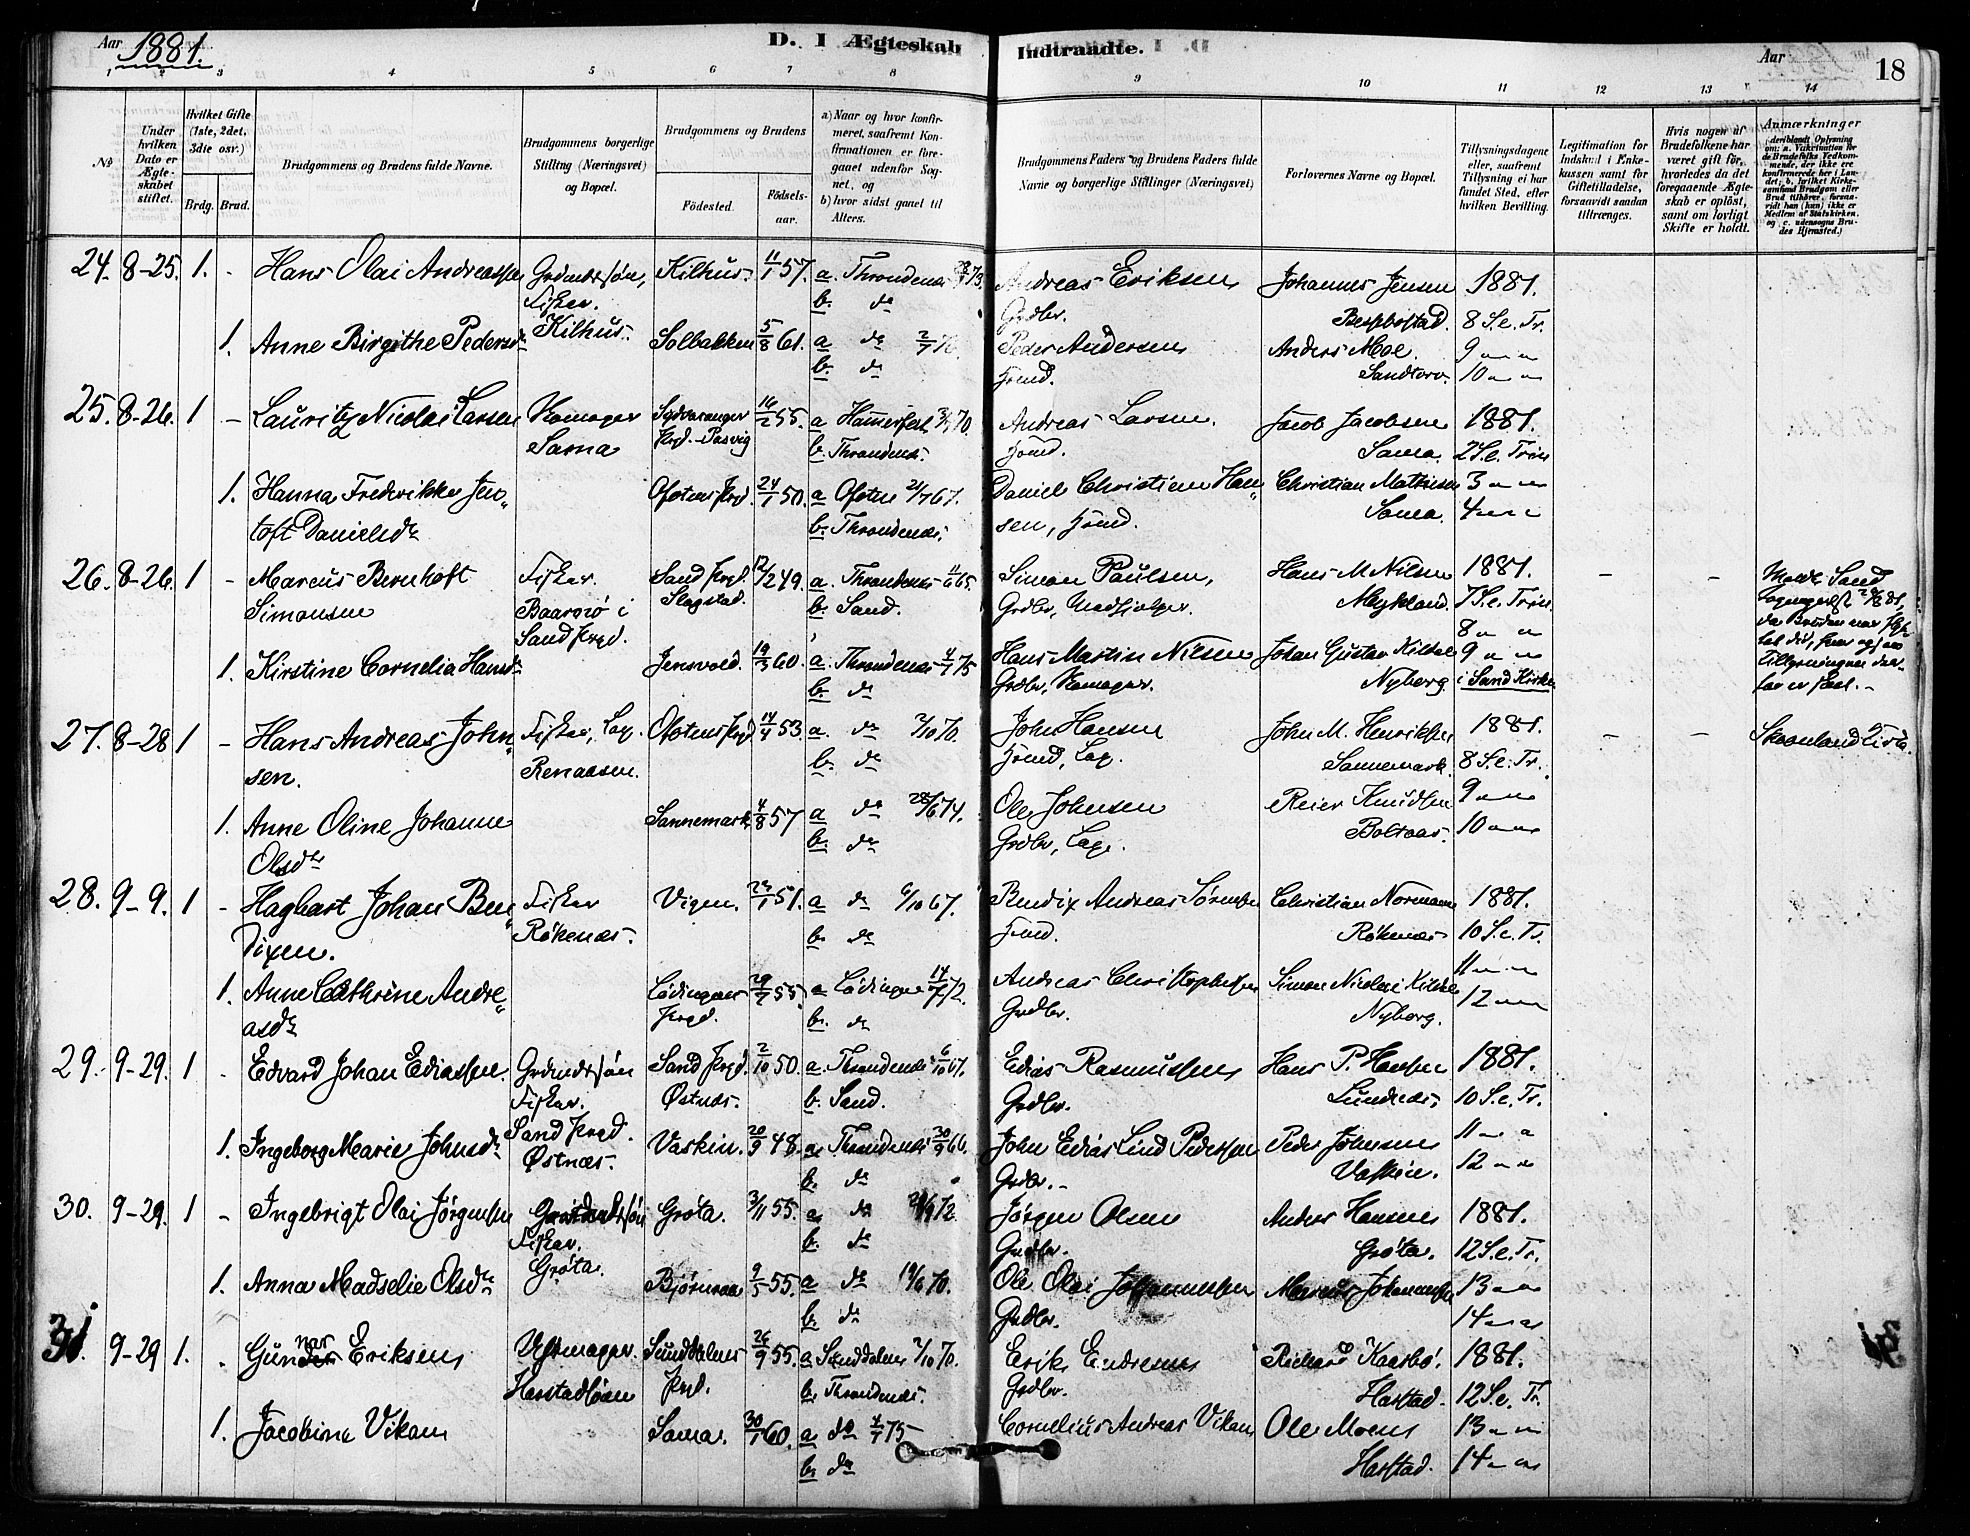 Aar 1881.
D. 1 Ægteskab Indtraadte.
Aar
18
1 2 3 4 5 6 7 8 9 10 11 12 13 14
№
Under hvilken Dato er Ægteskabet stiftet.
Hvilket Gifte (1ste, 2det, 3die osv.)
Brdg. Brud.
Brudgommens og Brudens fulde Navne.
Brudgommens borgerlige Stilling (Næringsvei) og Bopæl.
Brudgommens og Brudens
Fødested.
Fødselsaar.
a) Naar og hvor konfirmeret, saafremt Konfirmationen er foregaaet udenfor Sognet, og
b) hvor sidst ganet til Alters.
Brudgommens Faders og Brudens Faders fulde Navne og borgerlige Stillinger (Næringsvei)
Forlovernes Navne og Bopæl.
Tillysningsdagene eller, saafremt Tillysning ei har fundet Sted, efter hvilken Bevilling.
Legitimation for Indskud i Enkekassen samt for Giftetilladelse, forsaavidt saadan tiltrænges.
Hvis nogen af Brudefolkene har været gift før, hvorledes da det foregaaende Ægteskab er opløst, samt om lovligt Skifte er holdt.
Anmærkninger
24. 8-25. 1. - Hans Olai Andreassen Grdmdssøn, Kilhus. 11/1 57. a. Throndenæs 73. Andreas Eriksen Johannes Jensen 1881.
Fisker. b. do Grdbr. Bessebostad. 8 S. e. Tr.
1. Anne Birgithe Pedersdr Kilhus. Solbakken 5/8 61. a do 2/7 76. Peder Andersen Anders Moe. 9 " "
b. do Hmd. Sandtorv. 10 " "
25. 8-26. 1 - Lauritz Nicolai Larsen Komager Sydvaranger 16/2 55. a Hammerfest 70. Andreas Larsen. Jacob Jacobsen 1881.
Sama Prgd. Pasvig b. Throndenæs. Hmd. Sama. 2 S. e. Trin
1. Hanna Frederikke Jen- Ofotens Prgd. 24/1 50. a Ofoten 21/7 67. Daniel Christian Han- Christian Mathisen 3 " "
toft Danielsdr b. Throndenæs. sen, Hmd. Sama. 4 " "
26. 8-26. 1 - Marcus Bernhoft Fisker. Sand Prgd. 12/2 49. a. Throndenæs 11/6 65. Simon Paulsen, Hans M Nilsen 1881. - -
Simonsen Baarøsø i Slagstad. b. Sand. Grdbr, Medhjelper. Mykland. 7 S. e. Trin.
Sand Prgd. 8 " "
1. Kirstine Cornelia Hansdr Jensvold. 19/3 60. a. Throndenæs 4/7 75 Hans Martin Nilsen Johan Gustav Kildal 9 " "
b. do Grdbr, Komager. Nyborg i Sand Kirke
27. 8-28 1 - Hans Andreas John- Fisker, Lap. Ofotens Prgd. 14/4 53. a. do 2/10 70. John Hansen John M. Henriksen 1881. - - Skaanland Kirke.
sen. Renaasen. b. do Hmd, Lap. Sannemark. 8 S. e. Tr.
1. Anne Oline Johanne Sannemark 4/8 57 a do 28/6 74. Ole Johnsen Reier Knudsen 9 " "
Olsdr b. do Grdbr, Lap. Boltaas. 10 " "
28. 9-9. 1 - Hagbart Johan Ben- Fisker Vigen. 23/1 51. a do 6/10 67. Bendix Andreas Sørensen Christian Normann 1881.
dixen. Røkenæs. b. do Hmd. Røkenæs. 10 S. e. Tr.
1. Anne Cathrine Andre- Lødingens 29/7 55. a Lødingen 14/7 72. Andreas Christophersen Simon Nicolai Kildal 11 " "
asdr Prgd. b. do Grdbr. Nyborg. 12 " "
29. 9-29. 1 - Edvard Johan Ediassen Grdmdssøn Sand Prgd. 2/10 50. a. Throndenæs 6/10 67. Edias Rasmussen Hans P. Hansen 1881.
Fisker. Østnæs. b. Sand. Grdbr. Lundenæs, 10 S. e. Tr.
1. Ingeborg Marie Johnsdr Sand Prgd. Vaskin. 20/9 48. a. Throndenæs 30/9 66. John Edias Lind Pedersen Peder Johnsen 11 " "
Østnæs. b. do Grdbr. - Vaskin. 12 " "
30. 9-29. 1 - Ingebrigt Olai Jørgensen Grdmdssøn Grøta. 3/11 55. a. do 72. Jørgen Olsen Anders Hansen 1881.
Fisker. b. do Grdbr. Grøta. 12 S. e. Tr.
1. Anna Madselie Olsdr Grøta. Bjørnraa 9/5 55. a do 14/6 70. Ole Olai Johannessen Marcus Johannessen 13 " "
b. do Grdbr. 14 " "
31. 9-29 1. . Gunnar Eriksen Uhrmager. Sunddalens 26/9 55. a Sunddalen 2/10 70. Erik Endresen Richard Kaarbø. 1881.
Harstadbøen Prgd. b. Throndenæs. Grdbr. Harstad. 12 S. e. Tr.
1. Jacobine Vikan Sama. 30/1 60. a do 4/7 75 Cornelius Andreas Vikan Ole Moen 13 " "
b. do Harstad. 14 " "